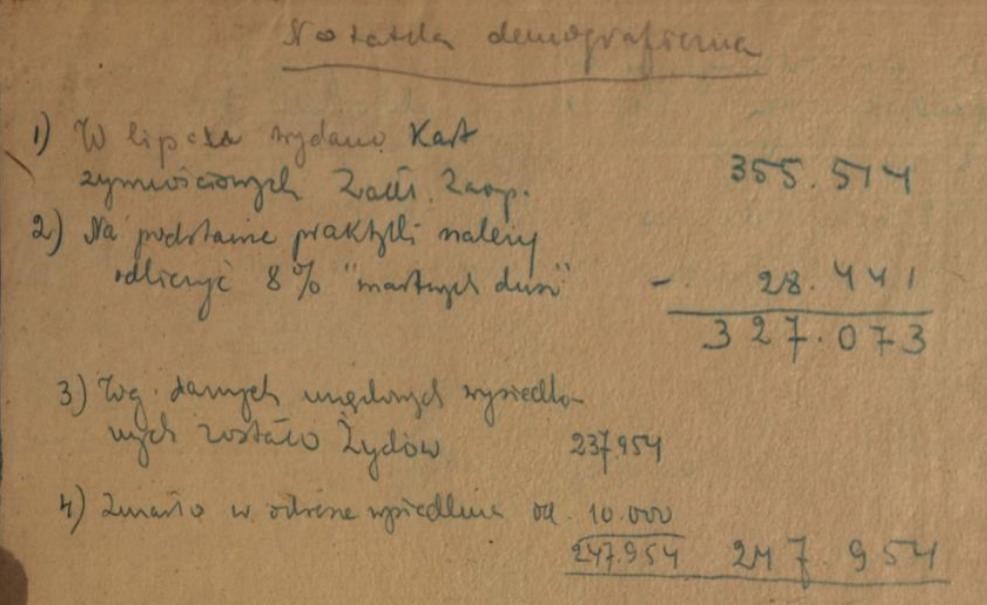 Notatka demograficzna
1) W lipcu wydano Kart
żywnościowych Zakł. Zaop. 355.514
2) Na podstawie praktyki należy
odliczyć 8% "martwych dusz" - 28.441
327.073
3) Wg. danych urzędowych wysiedlo-
nych zostało Żydów 237.954
4) Zmarło w okresie wysiedlenia ok. 10.000
247.954 247.954